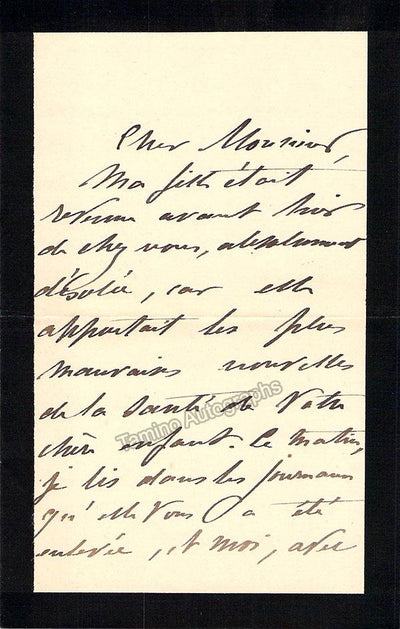 Cher Monsieur,
Ma fille était
revenue avant hier
de chez vous, absolument
désolée, car elle
apportait les plus
mauvaises nouvelles
de la santé de Votre
chère enfant. Ce matin,
je lis dans les journaux
qu'elle Vous a été
enlevée, et moi, avec
Tamino Autographs